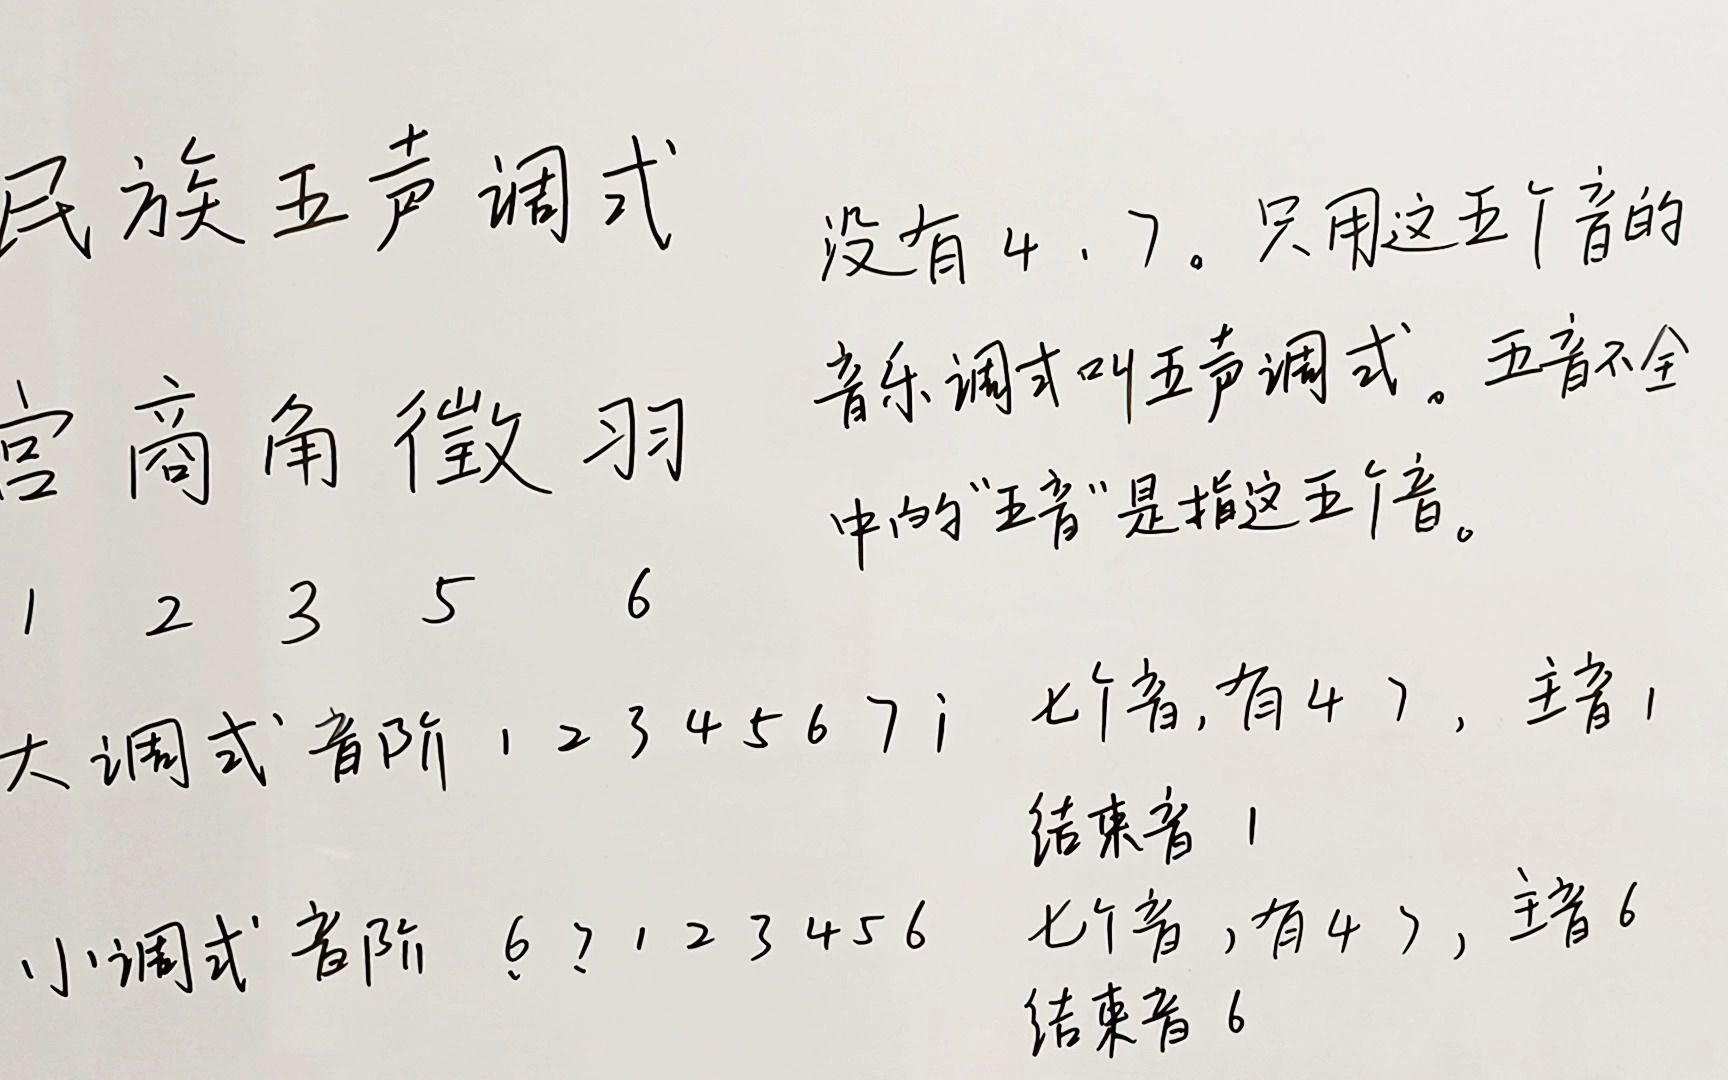 民族五声调式
没有4、7。只用这五个音的
音乐调式叫五声调式。五音不全
中的“五音”是指这五个音。
宫商角徵羽
1 2 3 5 6
大调式音阶 1 2 3 4 5 6 7 i 七个音,有4 7,主音1
结束音 1
小调式音阶 6̣ 7̣ 1 2 3 4 5 6 七个音,有4 7,主音6
结束音 6